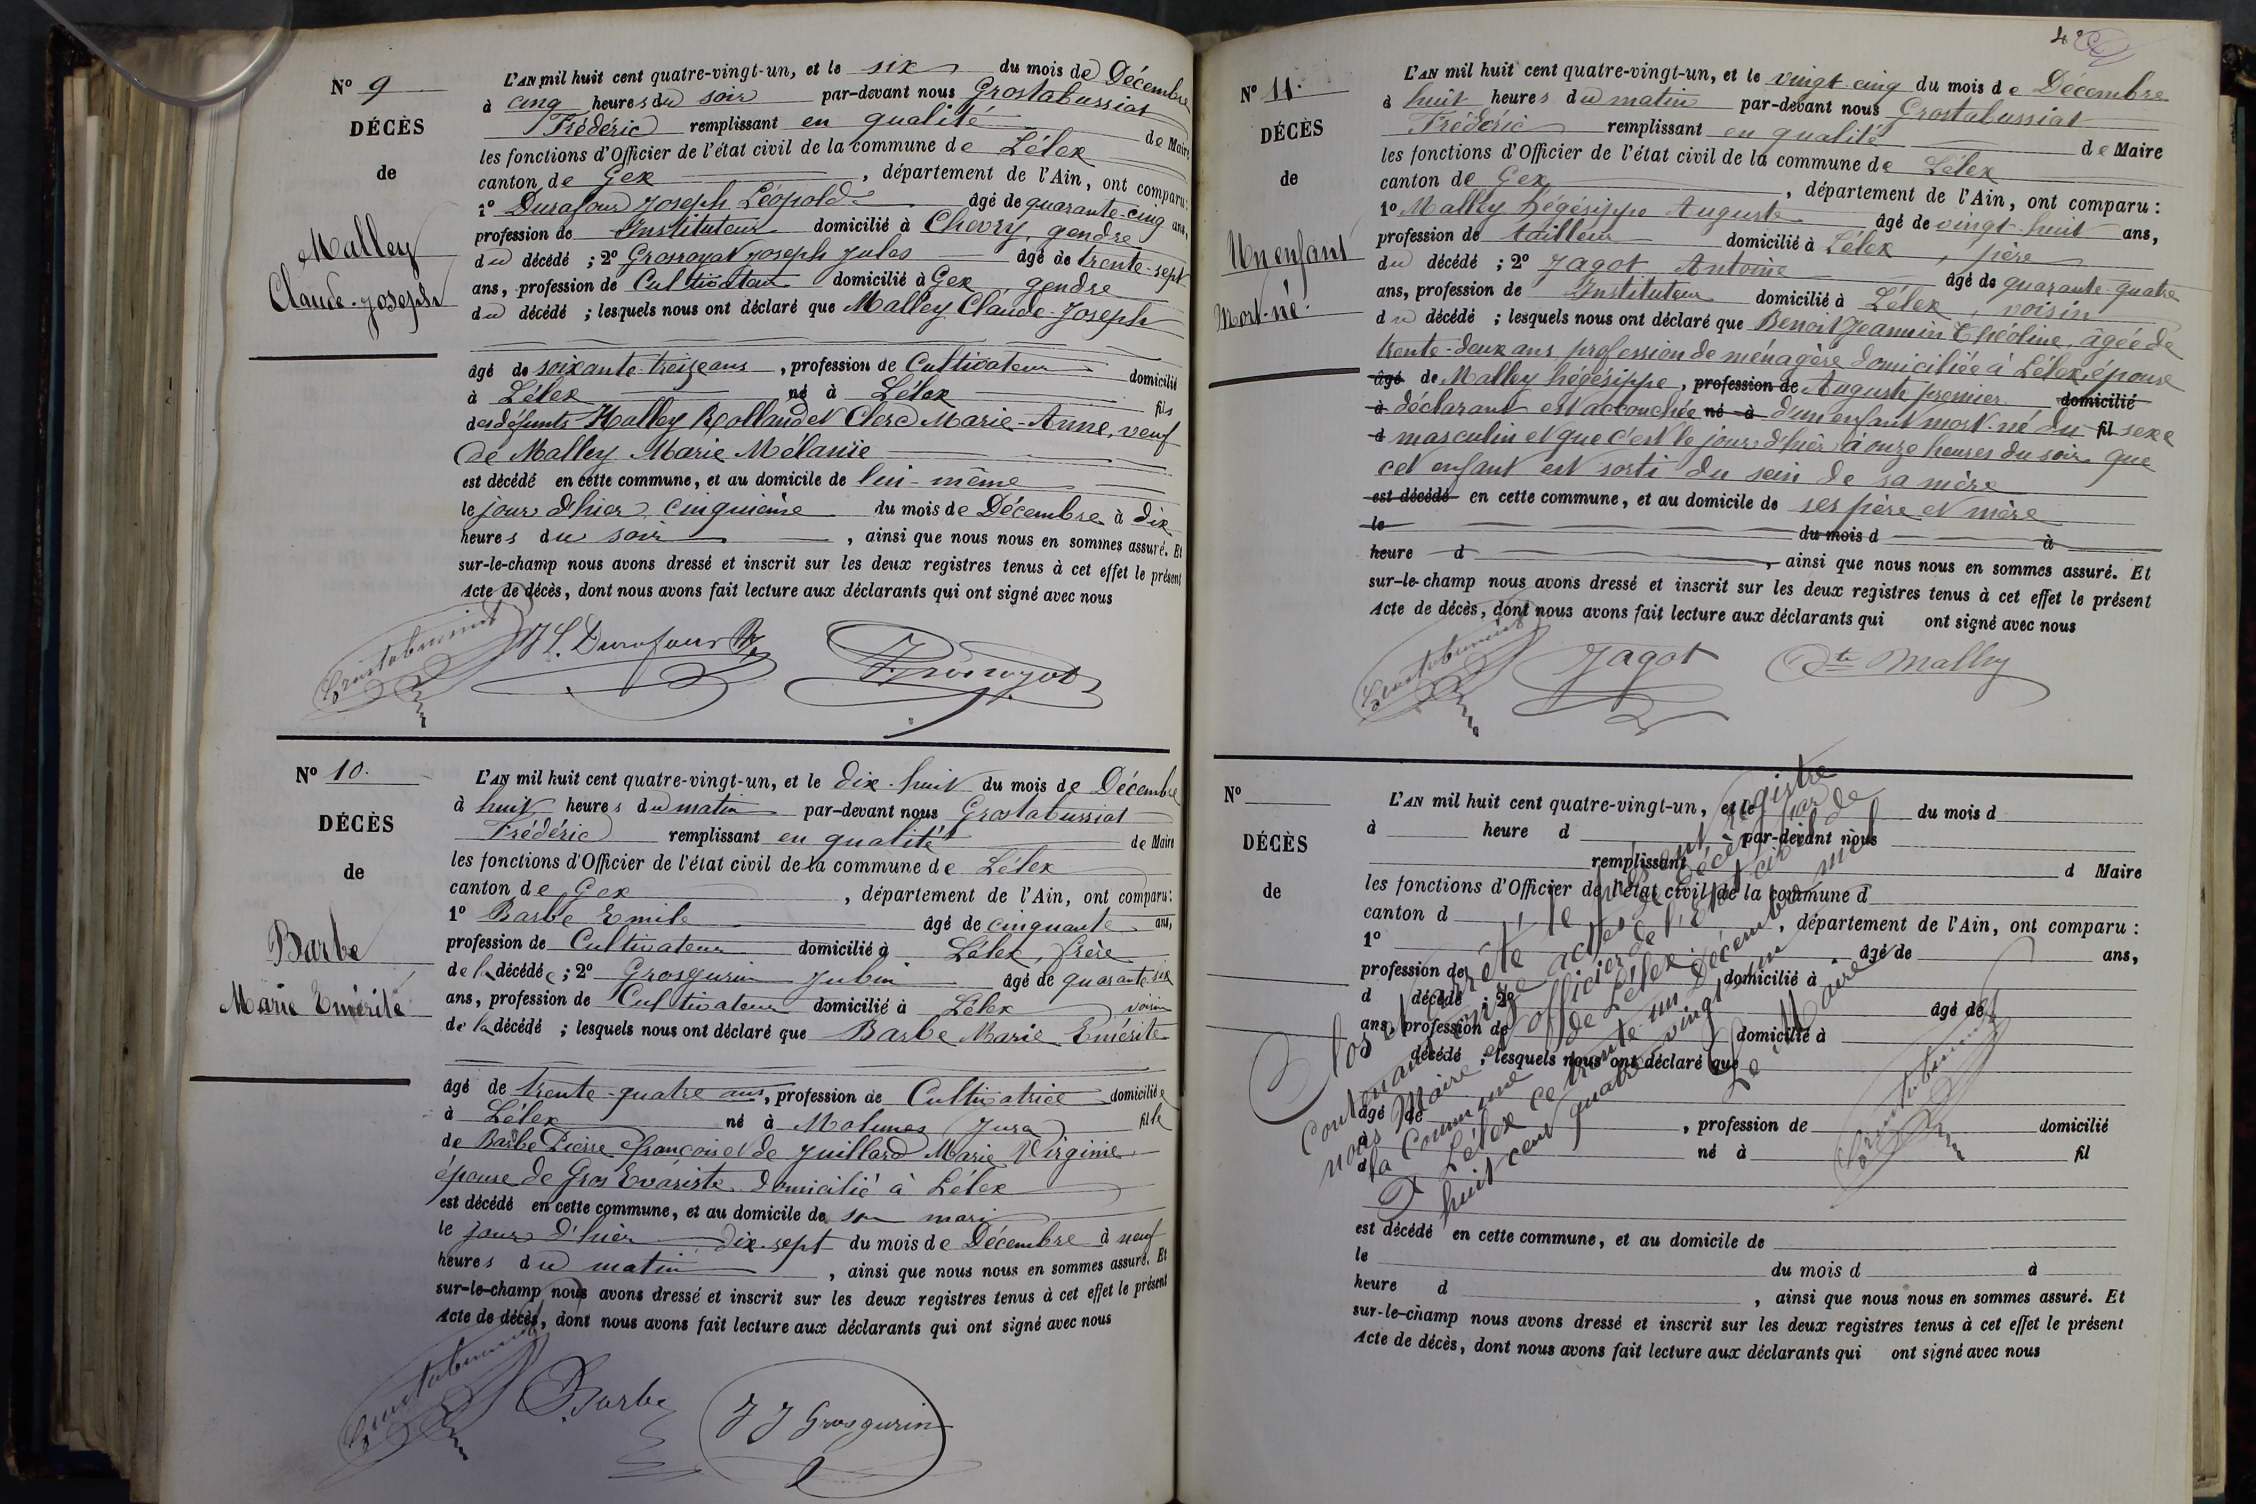 Nº 9
DÉCÈS
de
Malley
Claude-Joseph
L'AN mil huit cent quatre-vingt-un, et le six du mois de Décembre
à cinq heures du soir par-devant nous Grostabussiat
Frédéric remplissant en qualité de Maire
les fonctions d'Officier de l'état civil de la commune de Lélex
canton de Gex, département de l'Ain, ont comparu:
1º Durafour Joseph Léopold âgé de quarante-cinq ans,
profession de Instituteur domicilié à Chevry, gendre
du décédé; 2º Grosroyat Joseph Jules âgé de trente-sept
ans, profession de Cultivateur domicilié à Gex gendre
du décédé; lesquels nous ont déclaré que Malley Claude-Joseph
âgé de soixante-treize ans, profession de Cultivateur domicilié
à Lélex né à Lélex fils
des défunts Malley Rolland et Clerc Marie-Anne, veuf
de Malley Marie Mélanie
est décédé en cette commune, et au domicile de lui-même
le jour d'hier cinquième du mois de Décembre à dix
heures du soir, ainsi que nous nous en sommes assuré. Et
sur-le-champ nous avons dressé et inscrit sur les deux registres tenus à cet effet le présent
Acte de décès, dont nous avons fait lecture aux déclarants qui ont signé avec nous
Grostabussiat J L. Durafour
Nº 10.
DÉCÈS
de
Barbe
Marie Emérite
L'AN mil huit cent quatre-vingt-un, et le dix-huit du mois de Décembre
à huit heures du matin par-devant nous Grostabussiat
Frédéric remplissant en qualité de Maire
les fonctions d'Officier de l'état civil de la commune de Lélex
canton de Gex, département de l'Ain, ont comparu:
1º Barbe Emile âgé de cinquante ans,
profession de Cultivateur domicilié à Lélex, frère
de la décédée; 2º Grosgurin Jubin âgé de quarante-six
ans, profession de Cultivateur domicilié à Lélex voisin
de la décédé; lesquels nous ont déclaré que Barbe Marie Emérite
âgé de trente-quatre ans, profession de Cultivatrice domiciliée
à Lélex né à Molunes Jura fille
de Barbe Pierre François et de Juillard Marie Virginie
épouse de Gros Evariste domicilié à Lélex
est décédé en cette commune, et au domicile de son mari
le jour d'hier dix-sept du mois de Décembre à neuf
heures du matin, ainsi que nous nous en sommes assuré. Et
sur-le-champ nous avons dressé et inscrit sur les deux registres tenus à cet effet le présent
Acte de décès, dont nous avons fait lecture aux déclarants qui ont signé avec nous
Grostabussiat Barbe J J Grosgurin
Nº 11.
DÉCÈS
de
Un enfant
Mort-né.
L'AN mil huit cent quatre-vingt-un, et le vingt-cinq du mois de Décembre
à huit heures du matin par-devant nous Grostabussiat
Frédéric remplissant en qualité de Maire
les fonctions d'Officier de l'état civil de la commune de Lélex
canton de Gex, département de l'Ain, ont comparu:
1º Malley hégésippe Auguste âgé de vingt-huit ans,
profession de tailleur domicilié à Lélex, père
du décédé; 2º Jagot Antoine âgé de quarante-quatre
ans, profession de Instituteur domicilié à Lélex, voisin
du décédé; lesquels nous ont déclaré que Benoit Jeannin Théoline, âgée de
trente-deux ans profession de ménagère domiciliée à Lélex, épouse
âgé de Malley hégésippe, profession de Auguste premier domicilié
à déclarant est accouchée né à d'un enfant mort-né du fil sexe
d masculin et que c'est le jour d'hier à onze heures du soir que
cet enfant est sorti du sein de sa mère
est décédé en cette commune, et au domicile de ses père et mère
le du mois d à
heure d, ainsi que nous nous en sommes assuré. Et
sur-le-champ nous avons dressé et inscrit sur les deux registres tenus à cet effet le présent
Acte de décès, dont nous avons fait lecture aux déclarants qui ont signé avec nous
Grostabussiat Jagot Malley
Nº
DÉCÈS
de
L'AN mil huit cent quatre-vingt-un, et le du mois d
à heure d par-devant nous
remplissant d Maire
les fonctions d'Officier de l'état civil de la commune d
canton d, département de l'Ain, ont comparu:
1º âgé de ans,
profession de domicilié à
d décédé; 2º âgé de
ans, profession de domicilié à
décédé; lesquels nous ont déclaré que
âgé de, profession de domicilié
à né à fil
d
est décédé en cette commune, et au domicile de
le du mois d à
heure d, ainsi que nous nous en sommes assuré. Et
sur-le-champ nous avons dressé et inscrit sur les deux registres tenus à cet effet le présent
Acte de décès, dont nous avons fait lecture aux déclarants qui ont signé avec nous
Clos et arrêté le présent registre
contenant onze actes de décès par
nous Maire et officier de l'Etat civil de
la Commune de Lélex
A Lélex ce trente-un Décembre mil
huit cent quatre-vingt-un
Le Maire
Grostabussiat